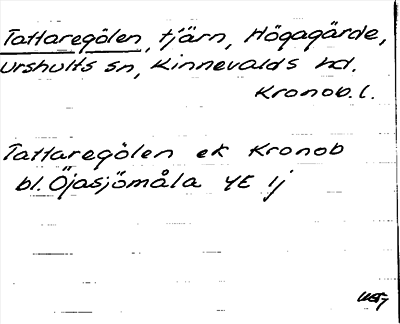 Tattaregölen, tjärn, Högagärde,
Urshults sn, Kinnevalds hd.
Kronob. l.
Tattaregölen ek Kronob
bl. Öjasjömåla 4E ij